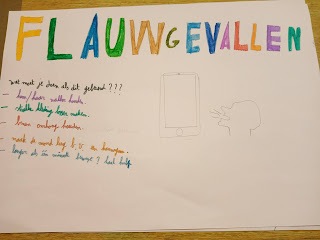 FLAUWGEVALLEN
wat moet je doen als dit gebeurd ???
- hem/haar wakker houden.
- strakke kleding losser maken.
- benen omhoog houden.
- maak de mond leeg b.v. en kauwgom.
- langer als één minuut bewust? bel hulp.